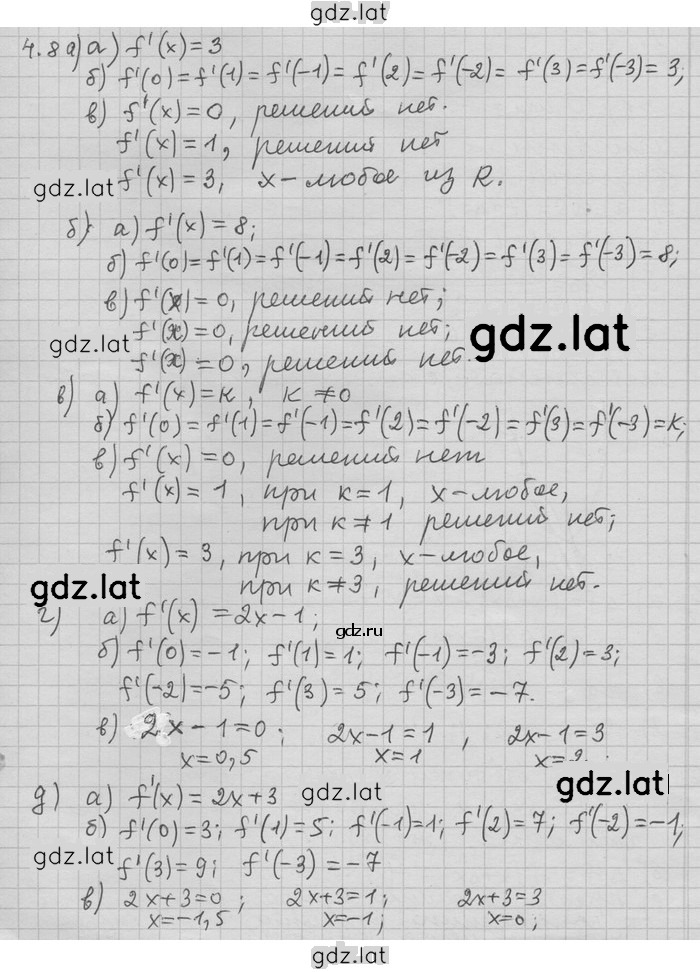 gdz.lat
4.8 а) а) f'(x) = 3
б) f'(0) = f'(1) = f'(-1) = f'(2) = f'(-2) = f'(3) = f'(-3) = 3;
в) f'(x) = 0, решений нет.
f'(x) = 1, решений нет
gdz.lat f'(x) = 3, x - любое из R.
б) а) f'(x) = 8;
б) f'(0) = f'(1) = f'(-1) = f'(2) = f'(-2) = f'(3) = f'(-3) = 8;
в) f'(x) = 0, решений нет;
gdz.lat f'(x) = 0, решений нет; gdz.lat
f'(x) = 0, решений нет.
в) а) f'(x) = к, к ≠ 0
б) f'(0) = f'(1) = f'(-1) = f'(2) = f'(-2) = f'(3) = f'(-3) = к;
в) f'(x) = 0, решений нет
f'(x) = 1, при к = 1, x - любое,
при к ≠ 1 решений нет;
f'(x) = 3, при к = 3, x - любое,
gdz.lat при к ≠ 3, решений нет.
г) а) f'(x) = 2x - 1;
gdz.ru
б) f'(0) = -1; f'(1) = 1; f'(-1) = -3; f'(2) = 3;
f'(-2) = -5; f'(3) = 5; f'(-3) = -7.
в) 2x - 1 = 0; 2x - 1 = 1, 2x - 1 = 3
x = 0,5 x = 1 x =
gdz.lat
д) а) f'(x) = 2x + 3 gdz.lat
б) f'(0) = 3; f'(1) = 5; f'(-1) = 1; f'(2) = 7; f'(-2) = -1;
gdz.lat f'(3) = 9; f'(-3) = -7
в) 2x + 3 = 0; 2x + 3 = 1; 2x + 3 = 3
x = -1,5 x = -1; x = 0;
gdz.lat